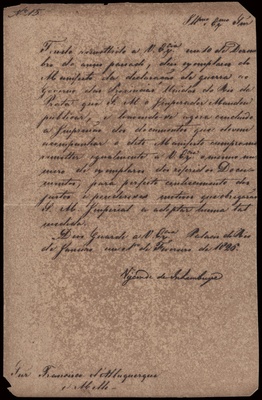 Nº 15.
Illmo. e Exmo. Snr.
Tendo remettido a V. Exa. em de Dezem
bro do anno passado, dez exemplares do
Manifesto da declaração da guerra ao
Governo das Provincias Unidas do Rio da
Prata que S. M. o Imperador Mandou
publicar, e havendo-se agora concluido
a Impressão dos documentos que devem
acompanhar o dito Manifesto cumpre-me
remetter igualmente a V. Exa. o mesmo nu
mero de exemplares dos referidos Docu
mentos, para perfeito conhecimento dos
justos e poderosos motivos que obrigárão
S. M. Imperial a adoptar huma tal
medida.
Deos Guarde a V. Exa. Palacio do Rio
de Janeiro, em 1º de Fevereiro de 1826.
Visconde de Inhambupe
Snr. Francisco d'Albuquerque
e Mello